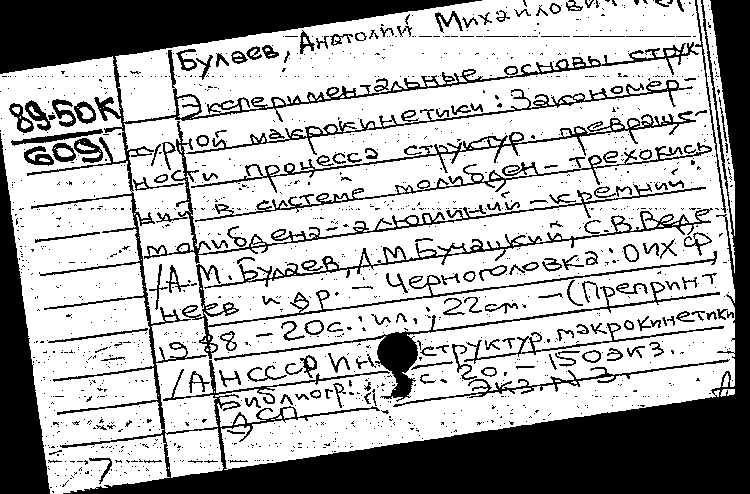 Булаев, Анатолий Михайлович
89-50К
6091
Экспериментальные основы струк-
турной макрокинетики: Закономер-
ности процесса структур. превраще-
ний в системе молибден-трехокись
молибдена-алюминий-кремний.
/А.М.Булаев, А.М.Бучацкий, С.В.Веде-
неев и др. - Черноголовка: ОИХФ,
1988. - 20с.: ил.; 22см. - (Препринт
/АН СССР, Ин-т структур. макрокинетики)
Библиогр.: с. 20. - 150экз.
ДСП. Экз.N 3.